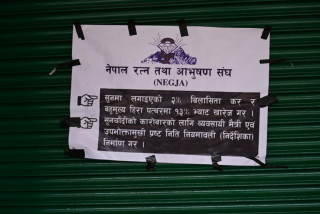 नेपाल रत्न तथा आभुषण संघ
(NEGJA)
सुनमा लगाइएको २% बिलासिता कर र
बहुमुल्य हिरा पत्थरमा १३% भ्याट खारेज गर ।
सुनचाँदीको कारोबारको लागि ब्यवसायी मैत्री एवं
उपभोक्तामुखी प्रष्ट निति नियमावली (निर्देशिका)
निर्माण गर ।